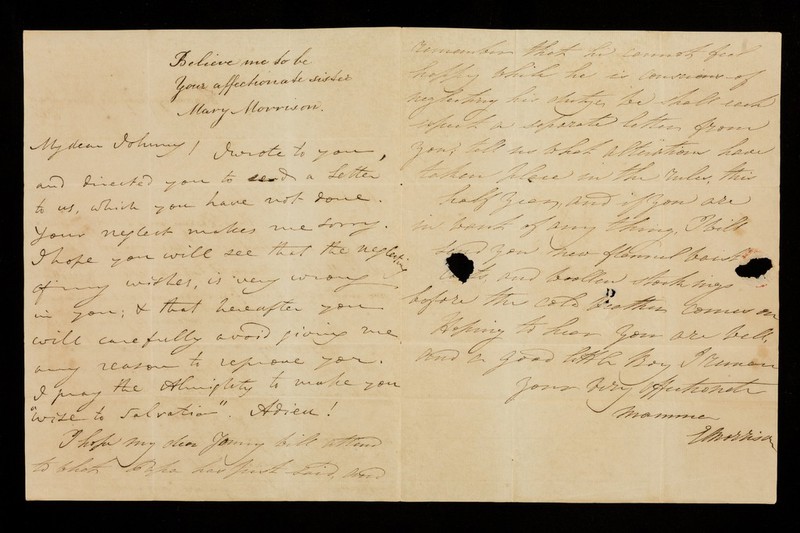 Believe me to be
Your affectionate sister
Mary Morrison.
My dear Johnny! I wrote to you,
and directed you to send a Letter
to us, which you have not done.
Your neglect makes me sorry.
I hope you will see that the neglecting
of my wishes, is very wrong
in you; & that hereafter you
will carefully avoid giving me
any reason to reprove you.
I pray the Almighty to make you
"wise to salvation". Adieu!
I hope my dear Jonny will attend
to what Papa has just said, and
remember that he cannot feel
happy while he is conscious of
neglecting his duty, we shall each
expect a separate letter from
you, tell us what alterations have
taken place in the rules, this
half year, and if you are
in want of any thing, I will
send you new flannel
and woollen stockings
before the cold weather comes on
Hoping to hear you are well,
and a good little Boy I remain
your very affectionate
Mamma
E Morrison